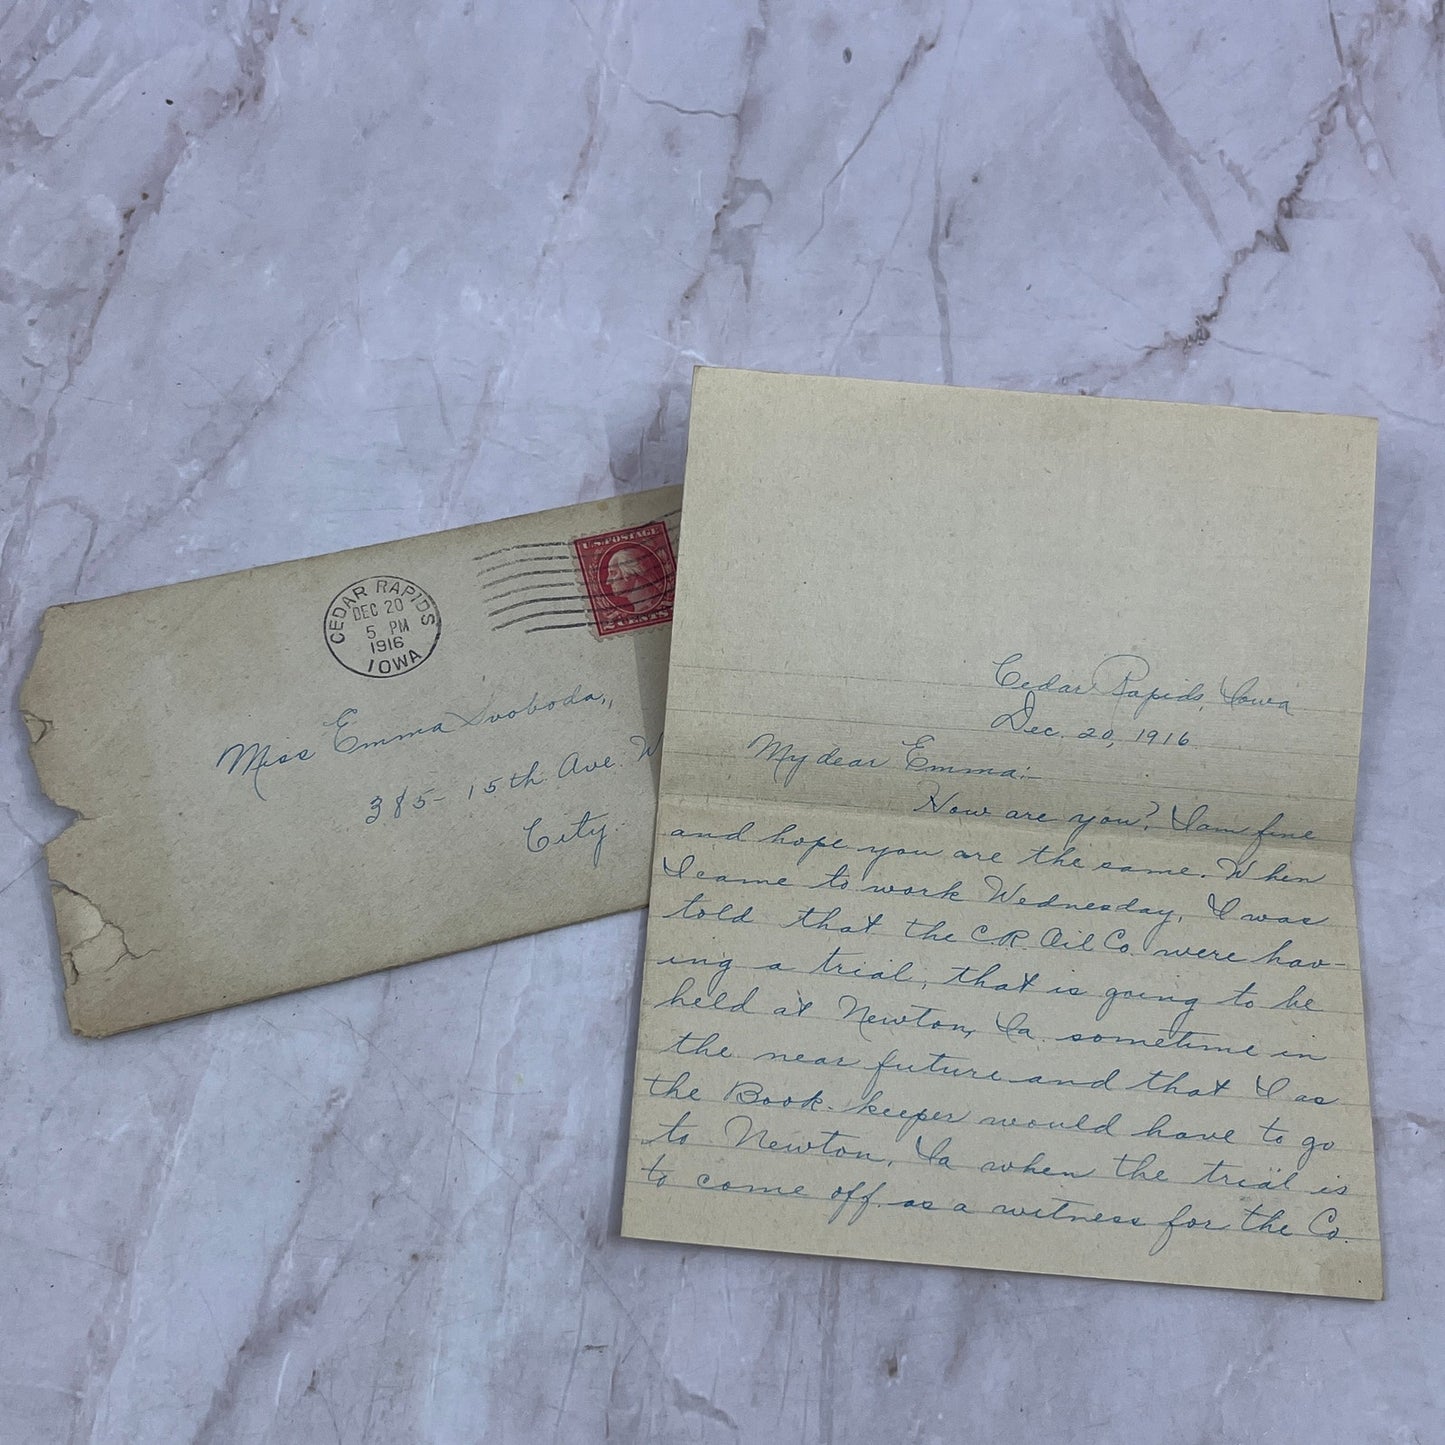 CEDAR RAPIDS
DEC 20
5 PM
1916
IOWA
U.S. POSTAGE
2 CENTS 2
Miss Emma Svoboda,
385- 15th Ave. W
City.
Cedar Rapids, Iowa
Dec. 20, 1916.
My dear Emma:-
How are you? I am fine
and hope you are the same. When
I came to work Wednesday, I was
told that the C.R. Oil Co. were hav-
ing a trial, that is going to be
held at Newton, Ia. sometime in
the near future and that I as
the Book-keeper would have to go
to Newton, Ia when the trial is
to come off as a witness for the Co.